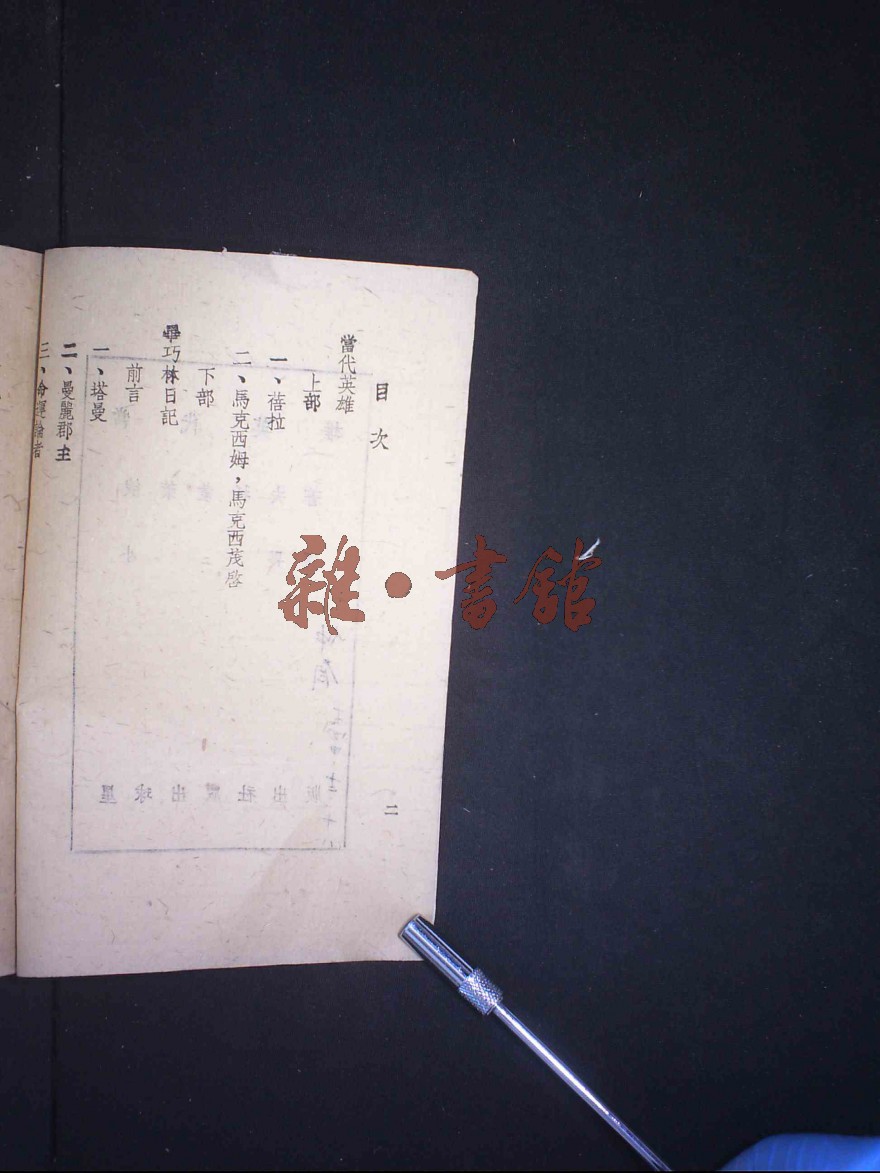 目次
當代英雄
上部
一、蓓拉
二、馬克西姆，馬克西茂啓
下部
畢巧林日記
前言
一、塔曼
二、曼麗郡主
三、命運論者
二
雜·書館